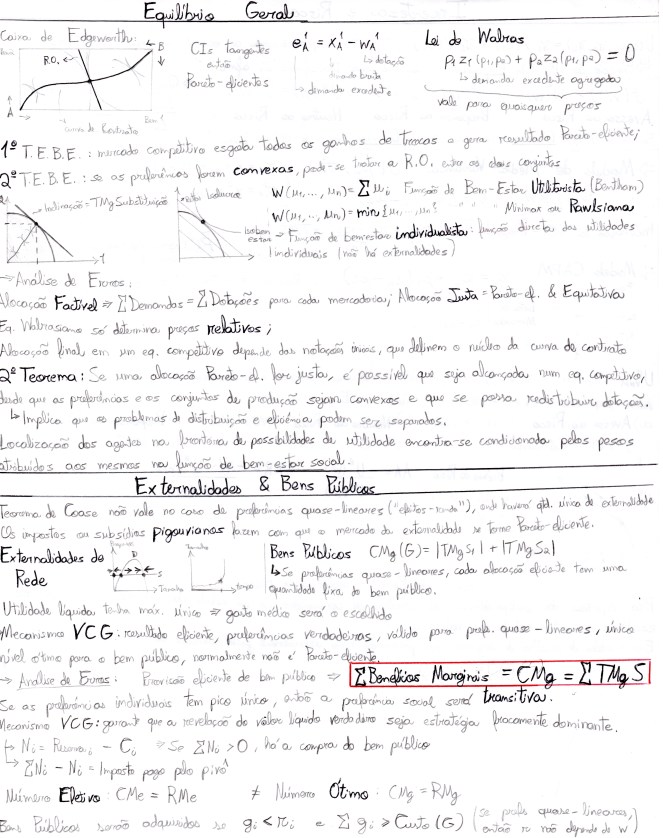 Equilíbrio Geral
Caixa de Edgeworth:
R.O.
B
A
Bem 1
curva de Contrato
CIs tangentes
então
Pareto-eficientes
e¹A = x¹A - w¹A
↳ dotação
demanda bruta
→ demanda excedente
Lei de Walras
p₁z₁(p₁,p₂) + p₂z₂(p₁,p₂) = 0
↳ demanda excedente agregada
vale para quaisquer preços
1º T.E.B.E.: mercado competitivo esgota todos os ganhos de trocas e gera resultado Pareto-eficiente;
2º T.E.B.E.: se as preferências forem convexas, pode-se traçar a R.O. entre os dois conjuntos
→ Inclinação = TMg Substituição
W(u₁, ..., uₙ) = ∑uᵢ Função de Bem-Estar Utilitarista (Bentham)
W(u₁, .., uₙ) = min{u₁, ..., uₙ} " " " Minimax ou Rawlsiana
isobem
estar
→ Função de bem-estar individualista: função directa das utilidades
individuais (não há externalidades)
→ Análise de Erros:
Alocação Factível ⇒ ∑Demandas = ∑Dotações para cada mercadoria; Alocação Justa = Pareto-ef. & Equitativa
Eq. Walrasiano só determina preços relativos;
Alocação final em um eq. competitivo depende das dotações que definem o núcleo da curva de contrato
2º Teorema: Se uma alocação Pareto-ef. for justa, é possível que seja alcançada num eq. competitivo,
desde que as preferências e os conjuntos de produção sejam convexos e que se possa redistribuir dotações.
↳ Implica que os problemas de distribuição e eficiência podem ser separados.
Localização dos agentes na fronteira de possibilidades de utilidade encontra-se condicionada pelos pesos
atribuídos aos mesmos na função de bem-estar social.
Externalidades & Bens Públicos
Teorema de Coase não vale no caso de preferências quase-lineares ("efeitos-renda"), onde haverá qtd. única de externalidade
Os impostos ou subsídios pigouvianos fazem com que o mercado da externalidade se torne Pareto-eficiente.
Externalidades de
Rede
D
S
Tamanho
Tamanho
tempo
Bens Públicos CMg(G) = |TMgS₁| + |TMgS₂|
↳ Se preferências quase-lineares, cada alocação eficiente tem uma
quantidade fixa do bem público.
Utilidade líquida tenha max. único ⇒ gasto médio será o escolhido
Mecanismo VCG: resultado eficiente, preferências verdadeiras, válido para prefs. quase-lineares, único
nível ótimo para o bem público, normalmente não é Pareto-eficiente.
→ Análise de Erros: Provisão eficiente de bem público ⇒ ∑Benefícios Marginais = CMg = ∑TMgS
Se as preferências individuais têm pico único, então a preferência social será transitiva.
Mecanismo VCG: garante que a revelação do valor líquido verdadeiro seja estratégia fracamente dominante.
↳ Nᵢ = Reservaᵢ - Cᵢ ⇒ Se ∑Nᵢ > 0, há a compra do bem público
↳ ∑Nᵢ - Nᵢ = Imposto pago pelo pivô
Número Efetivo: CMe = RMe ≠ Número Ótimo: CMg = RMg
Bens Públicos serão adquiridos se gᵢ < rᵢ e ∑gᵢ ≥ Custo(G) (se prefs quase-lineares,
então rᵢ não depende de w)